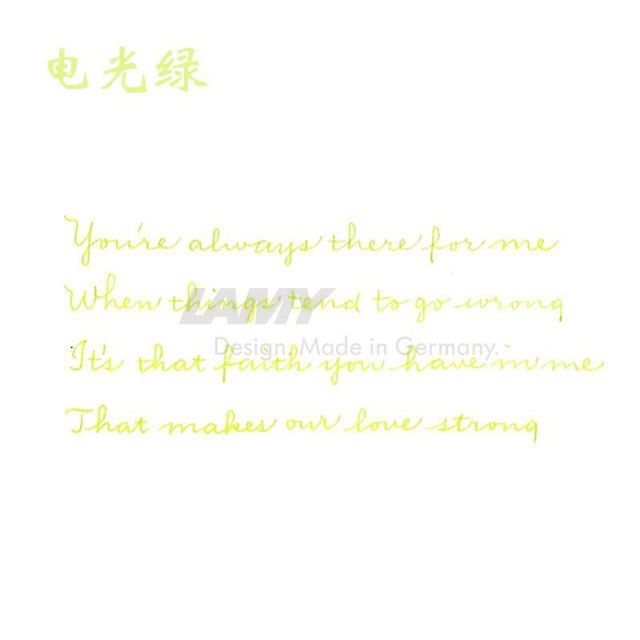 电光绿
You're always there for me
When things tend to go wrong
LAMY
Design. Made in Germany.
It's that faith you have in me
That makes our love strong